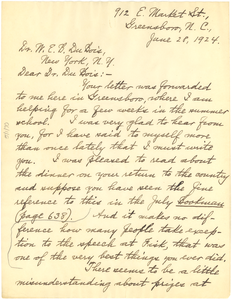 912 E. Market St.,
Greensboro, N. C.,
June 28, 1924.
Dr. W. E. B. Du Bois,
New York, N. Y.
Dear Dr. Du Bois:—
Your letter was forwarded
to me here in Greensboro, where I am
helping for a few weeks in the summer
school. I was very glad to hear from
you, for I have said to myself more
than once lately that I must write
you. I was pleased to read about
the dinner on your return to the country
and suppose you have seen the fine
reference to this in the July Bookman
(page 638). And it makes no dif-
ference how many people take excep-
tion to the speech at Fisk, that was
one of the very best things you ever did.
There seems to be a little
misunderstanding about prizes at